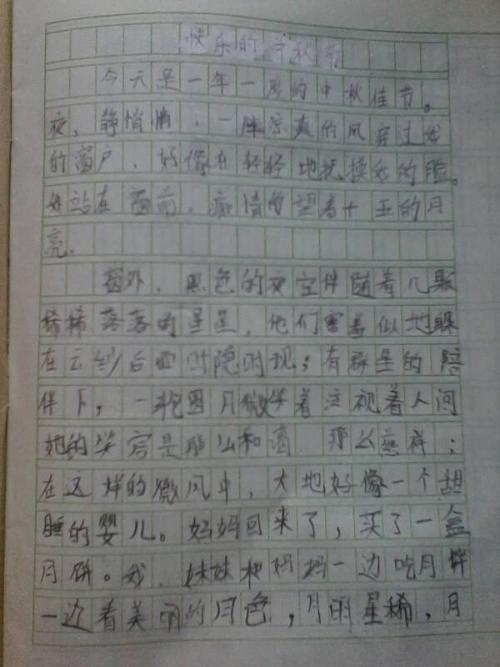 快乐的中秋节
今天是一年一度的中秋佳节。
夜,静悄悄,一阵凉爽的风穿过我
的窗户,好像在轻轻地抚摸我的脸。
我站在窗前,痴情的望着十五的月
亮。
窗外,黑色的夜空伴随着几颗
稀稀落落的星星,他们害羞似地躲
在云纱后面时隐时现;有群星的陪
伴下,一轮圆月微笑着注视着人间
她的笑容是那么和蔼 那么慈祥;
在这样的微风中,大地好像一个甜
睡的婴儿。妈妈回来了,买了一盒
月饼。我、妹妹和妈妈一边吃月饼
一边看美丽的月色,月明星稀,月